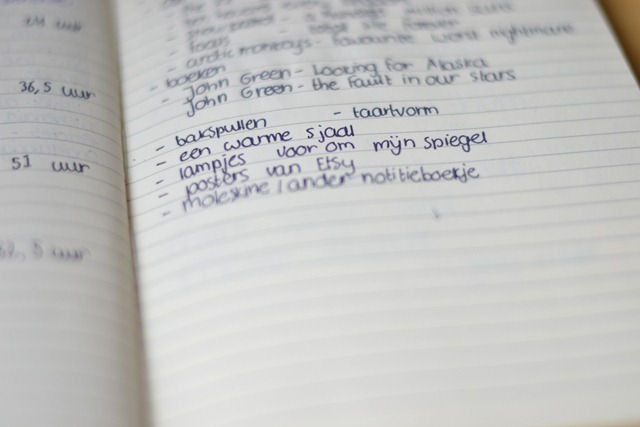 36,5 uur
51 uur
- arctic monkeys - favourite worst nightmare
- boeken
- John Green - Looking for Alaska
John Green - the fault in our stars
- bakspullen - taartvorm
- een warme sjaal
- lampjes voor om mijn spiegel
- posters van Etsy
- moleskine / ander notitieboekje